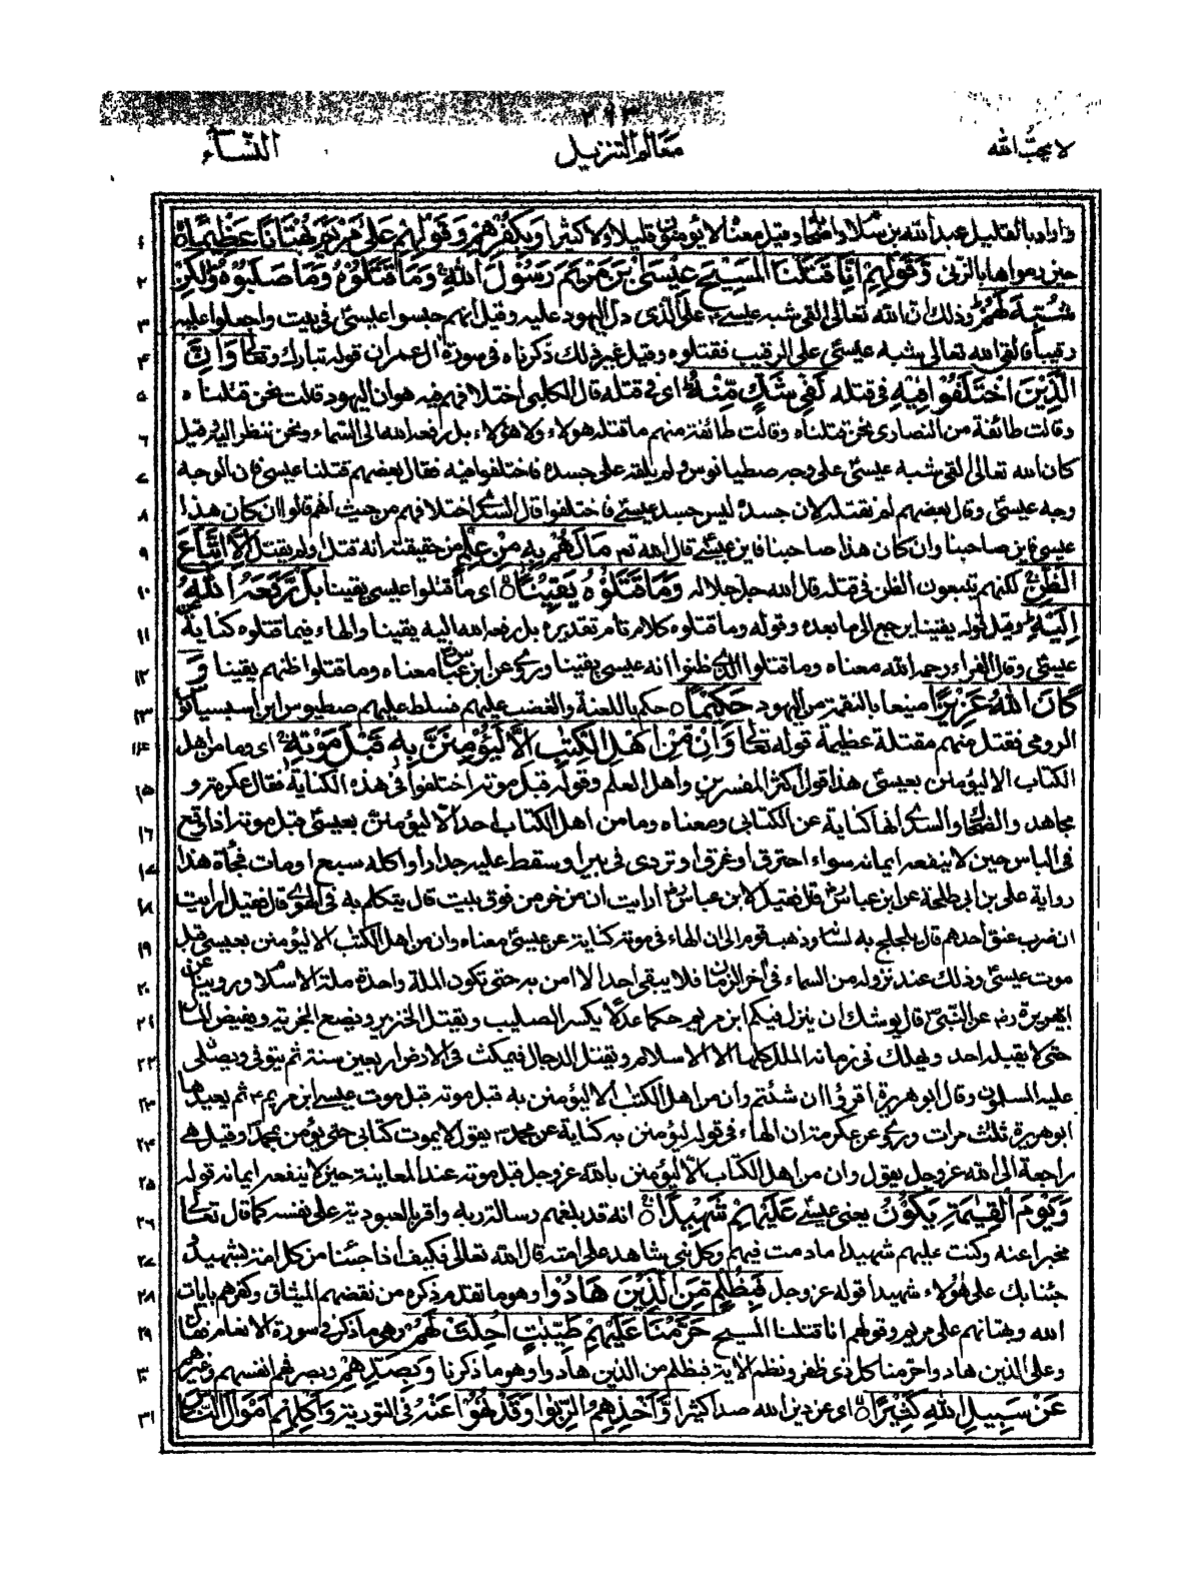 ٢١٣
لا يحب الله
معالم التنزيل
النساء
وأراد بالقليل عبد الله بن سلام وأصحابه وقيل معناه لا يؤمنون قليلا ولا كثيرا وَبِكُفْرِهِمْ وَقَوْلِهِمْ عَلَىٰ مَرْيَمَ بُهْتَانًا عَظِيمًا ١
حين رموها بالزنى وَقَوْلِهِمْ إِنَّا قَتَلْنَا الْمَسِيحَ عِيسَى ابْنَ مَرْيَمَ رَسُولَ اللهِ وَمَا قَتَلُوهُ وَمَا صَلَبُوهُ وَلَٰكِنْ ٢
شُبِّهَ لَهُمْ وذلك ان الله تعالى القى شبه عيسى على الذى دل اليهود عليه وقيل انهم حبسوا عيسى فى بيت واجعلوا عليه ٣
رقيبا فالقى الله تعالى شبه عيسى على الرقيب فقتلوه وقيل غير ذلك ذكرناه فى سورة ال عمران قوله تبارك وتعالى وَإِنَّ ٤
الَّذِينَ اخْتَلَفُوا فِيهِ فى قتله لَفِي شَكٍّ مِنْهُ اى فى قتله قال الكلبى اختلافهم فيه هو ان اليهود قالت نحن قتلناه ٥
وقالت طائفة من النصارى نحن قتلناه وقالت طائفة منهم ما قتله هولاء ولا هؤلاء بل رفعه الله الى السماء ونحن ننظر اليه وقيل ٦
كان الله تعالى القى شبه عيسى على وجه صطيانوس ولم يلقه على جسده فاختلفوا فيه فقال بعضهم قتلنا عيسى فان الوجه ٧
وجه عيسى وقال بعضهم لم نقتله لان جسده ليس جسد عيسى فاختلفوا قال السدى اختلافهم من حيث انهم قالوا ان كان هذا ٨
عيسى فاين صاحبنا وان كان هذا صاحبنا فاين عيسى قال الله تع مَا لَهُمْ بِهِ مِنْ عِلْمٍ من حقيقته انه قتل ولم يقتل إِلَّا اتِّبَاعَ ٩
الظَّنِّ لكنهم تتبعون الظن فى قتله قال الله جل جلاله وَمَا قَتَلُوهُ يَقِينًا اى ما قتلوا عيسى يقينا بَلْ رَفَعَهُ اللهُ ١٠
إِلَيْهِ وقيل قوله يقينا يرجع الى ما بعده وقوله وما قتلوه كلام تام تقديره بل رفعه الله اليه يقينا والهاء فيما قتلوه كناية عن ١١
عيسى وقال الفراء رحمه الله معناه وما قتلوا الذى ظنوا انه عيسى يقينا وروى عن ابن عباس معناه وما قتلوا ظنهم يقينا وَ ١٢
كَانَ اللهُ عَزِيزًا منيعا بالنقمة من اليهود حَكِيمًا حكم باللعنة والغضب عليهم فسلط عليهم صطيوس ابن اسبسيانو ١٣
الرومى فقتل منهم مقتلة عظيمة قوله تعالى وَإِنْ مِنْ أَهْلِ الْكِتَٰبِ إِلَّا لَيُؤْمِنَنَّ بِهِ قَبْلَ مَوْتِهِ اى وما من اهل ١٤
الكتاب الا ليؤمنن بعيسى هذا قول اكثر المفسرين واهل العلم وقوله قبل موته اختلفوا فى هذه الكناية فقال عكرمة و ١٥
مجاهد والضحاك والسدى انها كناية عن الكتابى ومعناه وما من اهل الكتاب احد الا ليؤمنن بعيسى قبل موته اذا وقع ١٦
فى الباس حين لا ينفعه ايمانه سواء احترق او غرق او تردى فى بير او سقط عليه جدار او اكله سبع او مات فجأة هذا ١٧
رواية على بن ابى طلحة عن ابن عباس قال فقيل لابن عباس ارايت ان من خر من فوق بيت قال يتكلم به فى الهوى قال فقيل ارايت ١٨
ان ضرب عنق احدهم قال يلجلج به لسانه وذهب قوم الى ان الهاء فى موته كناية عن عيسى معناه وان من اهل الكتٰب الا ليؤمنن بعيسى قبل ١٩
موت عيسى وذلك عند نزوله من السماء فى اخر الزمان فلا يبقى احد الا امن به حتى تكون الملة واحدة ملة الاسلام وروينا عن ٢٠
ابى هريرة رض عن النبى ص قال يوشك ان ينزل فيكم ابن مريم حكما عدلا يكسر الصليب ويقتل الخنزير ويضع الجزية ويفيض المال ٢١
حتى لا يقبله احد ويهلك فى زمانه الملل كلها الا الاسلام ويقتل الدجال فيمكث فى الارض اربعين سنة ثم يتوفى ويصلى ٢٢
عليه المسلمون وقال ابو هريرة اقرؤا ان شئتم وان من اهل الكتٰب الا ليؤمنن به قبل موته قبل موت عيسى ابن مريم ثم يعيدها ٢٣
ابو هريرة ثلث مرات وروى عن عكرمة ان الهاء فى قوله ليؤمنن به كناية عن محمد يقول لا يموت كتابى حتى يؤمن بمحمد وقيل هى ٢٤
راجعة الى الله عز وجل يقول وان من اهل الكتاب الا ليؤمنن بالله عز وجل قبل موته عند المعاينة حين لا ينفعه ايمانه قوله ٢٥
وَيَوْمَ الْقِيٰمَةِ يَكُونُ يعنى عيسى عَلَيْهِمْ شَهِيدًا انه قد بلغهم رسالة ربه واقر بالعبودية على نفسه كما قال تعالى ٢٦
مخبرا عنه وكنت عليهم شهيدا ما دمت فيهم وكل نبى شاهد على امته قال الله تعالى فكيف اذا جئنا من كل امة بشهيد و ٢٧
جئنا بك على هؤلاء شهيدا قوله عز وجل فَبِظُلْمٍ مِنَ الَّذِينَ هَادُوا وهو ما تقدم ذكره من نقضهم الميثاق وكفرهم بايات ٢٨
الله وبهتانهم على مريم وقولهم انا قتلنا المسيح حَرَّمْنَا عَلَيْهِمْ طَيِّبَٰتٍ أُحِلَّتْ لَهُمْ وهو ما ذكر فى سورة الانعام فقال ٢٩
وعلى الذين هادوا حرمنا كل ذى ظفر ونظم الاية فبظلم من الذين هادوا وهو ما ذكرنا وَبِصَدِّهِمْ وبصرفهم انفسهم وغيرهم ٣٠
عَنْ سَبِيلِ اللهِ كَثِيرًا اى عن دين الله صدا كثيرا وَأَخْذِهِمُ الرِّبٰوا وَقَدْ نُهُوا عَنْهُ فى التورىة وَأَكْلِهِمْ أَمْوَالَ النَّاسِ ٣١